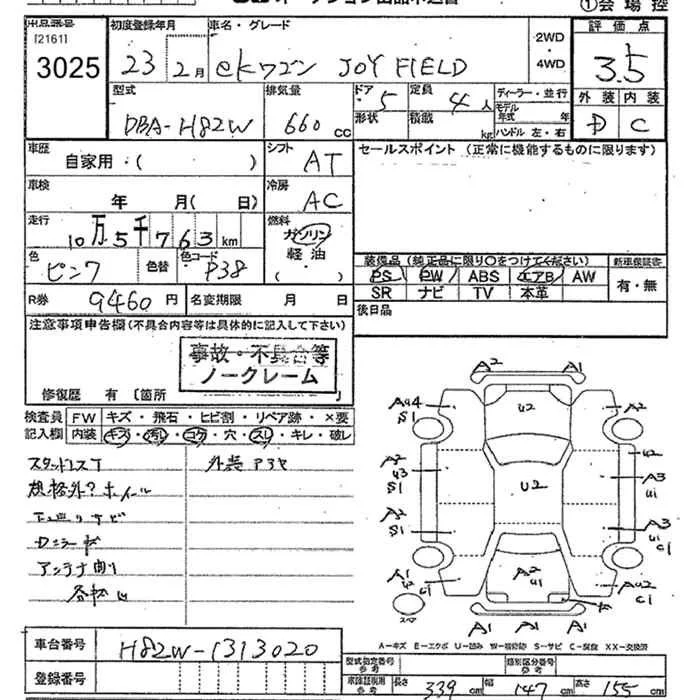 ①会場控
出品番号 初度登録年月 車名・グレード 評価点
[2161]
3025 23年 2月 ekワゴン JOY FIELD 2WD・4WD 3.5
型式 排気量 ドア 5 定員 4人 ディーラー・並行 外装 内装
DBA-H82W 660cc 形状 積載 kg モデル年式 年 D C
ハンドル 左・右
車歴 自家用・( ) シフト AT セールスポイント (正常に機能するものに限ります)
車検 年 月( 日) 冷房 AC
走行 10万5千763km 燃料 ガソリン
軽油
( )
色 ピンク 色替 色コード P38
装備品 (純正品に限り○をつけてください) 新車保証書
PS PW ABS エアB AW 有・無
SR ナビ TV 本革
R券 9460円 名変期限 月 日 後日品
注意事項申告欄(不具合内容等は具体的に記入して下さい)
事故・不具合等
ノークレーム
修復歴 有 〔箇所 〕
検査員 FW キズ・飛石・ヒビ割・リペア跡・×要
記入欄 内装 キズ・汚レ・コゲ・穴・スレ・キレ・破レ
スタッドレスT 外装
規格外?ホイール
下廻りサビ
アンテナ
A2 A1
A2
U2
S1
A2 U3 S1
U2
A3 U1
U2
A2 S1
A3 U1 C1
A1 U1
A2 U1
AU2 C1
スペア
A1 A1 A2
A-キズ E-エクボ U-凹み W-補修跡 S-サビ C-腐食 XX-交換済
車台番号 H82W-1313020
登録番号
型式指定番号 参考 類別区分番号 参考
車検証数値 参考 長さ 339 cm 幅 147 cm 高さ 155 cm